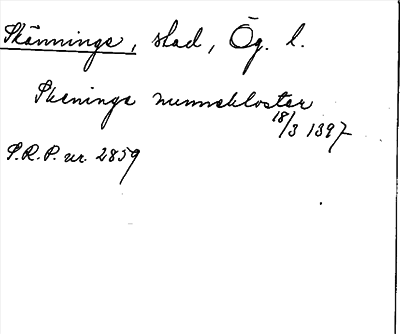 Skänninge, stad, Ög. l.
Skeninge nunnekloster
18/3 1397
S.R.P. nr. 2859